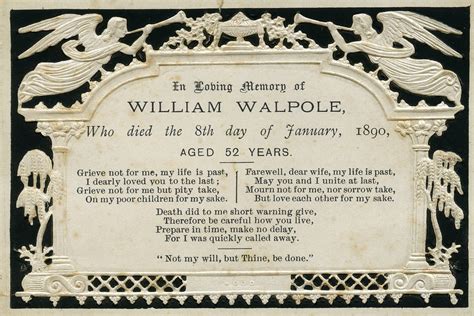 In Loving Memory of
WILLIAM WALPOLE,
Who died the 8th day of January, 1890,
AGED 52 YEARS.
Grieve not for me, my life is past,
I dearly loved you to the last;
Grieve not for me but pity take,
On my poor children for my sake.
Farewell, dear wife, my life is past,
May you and I unite at last,
Mourn not for me, nor sorrow take,
But love each other for my sake.
Death did to me short warning give,
Therefore be careful how you live,
Prepare in time, make no delay,
For I was quickly called away.
"Not my will, but Thine, be done."